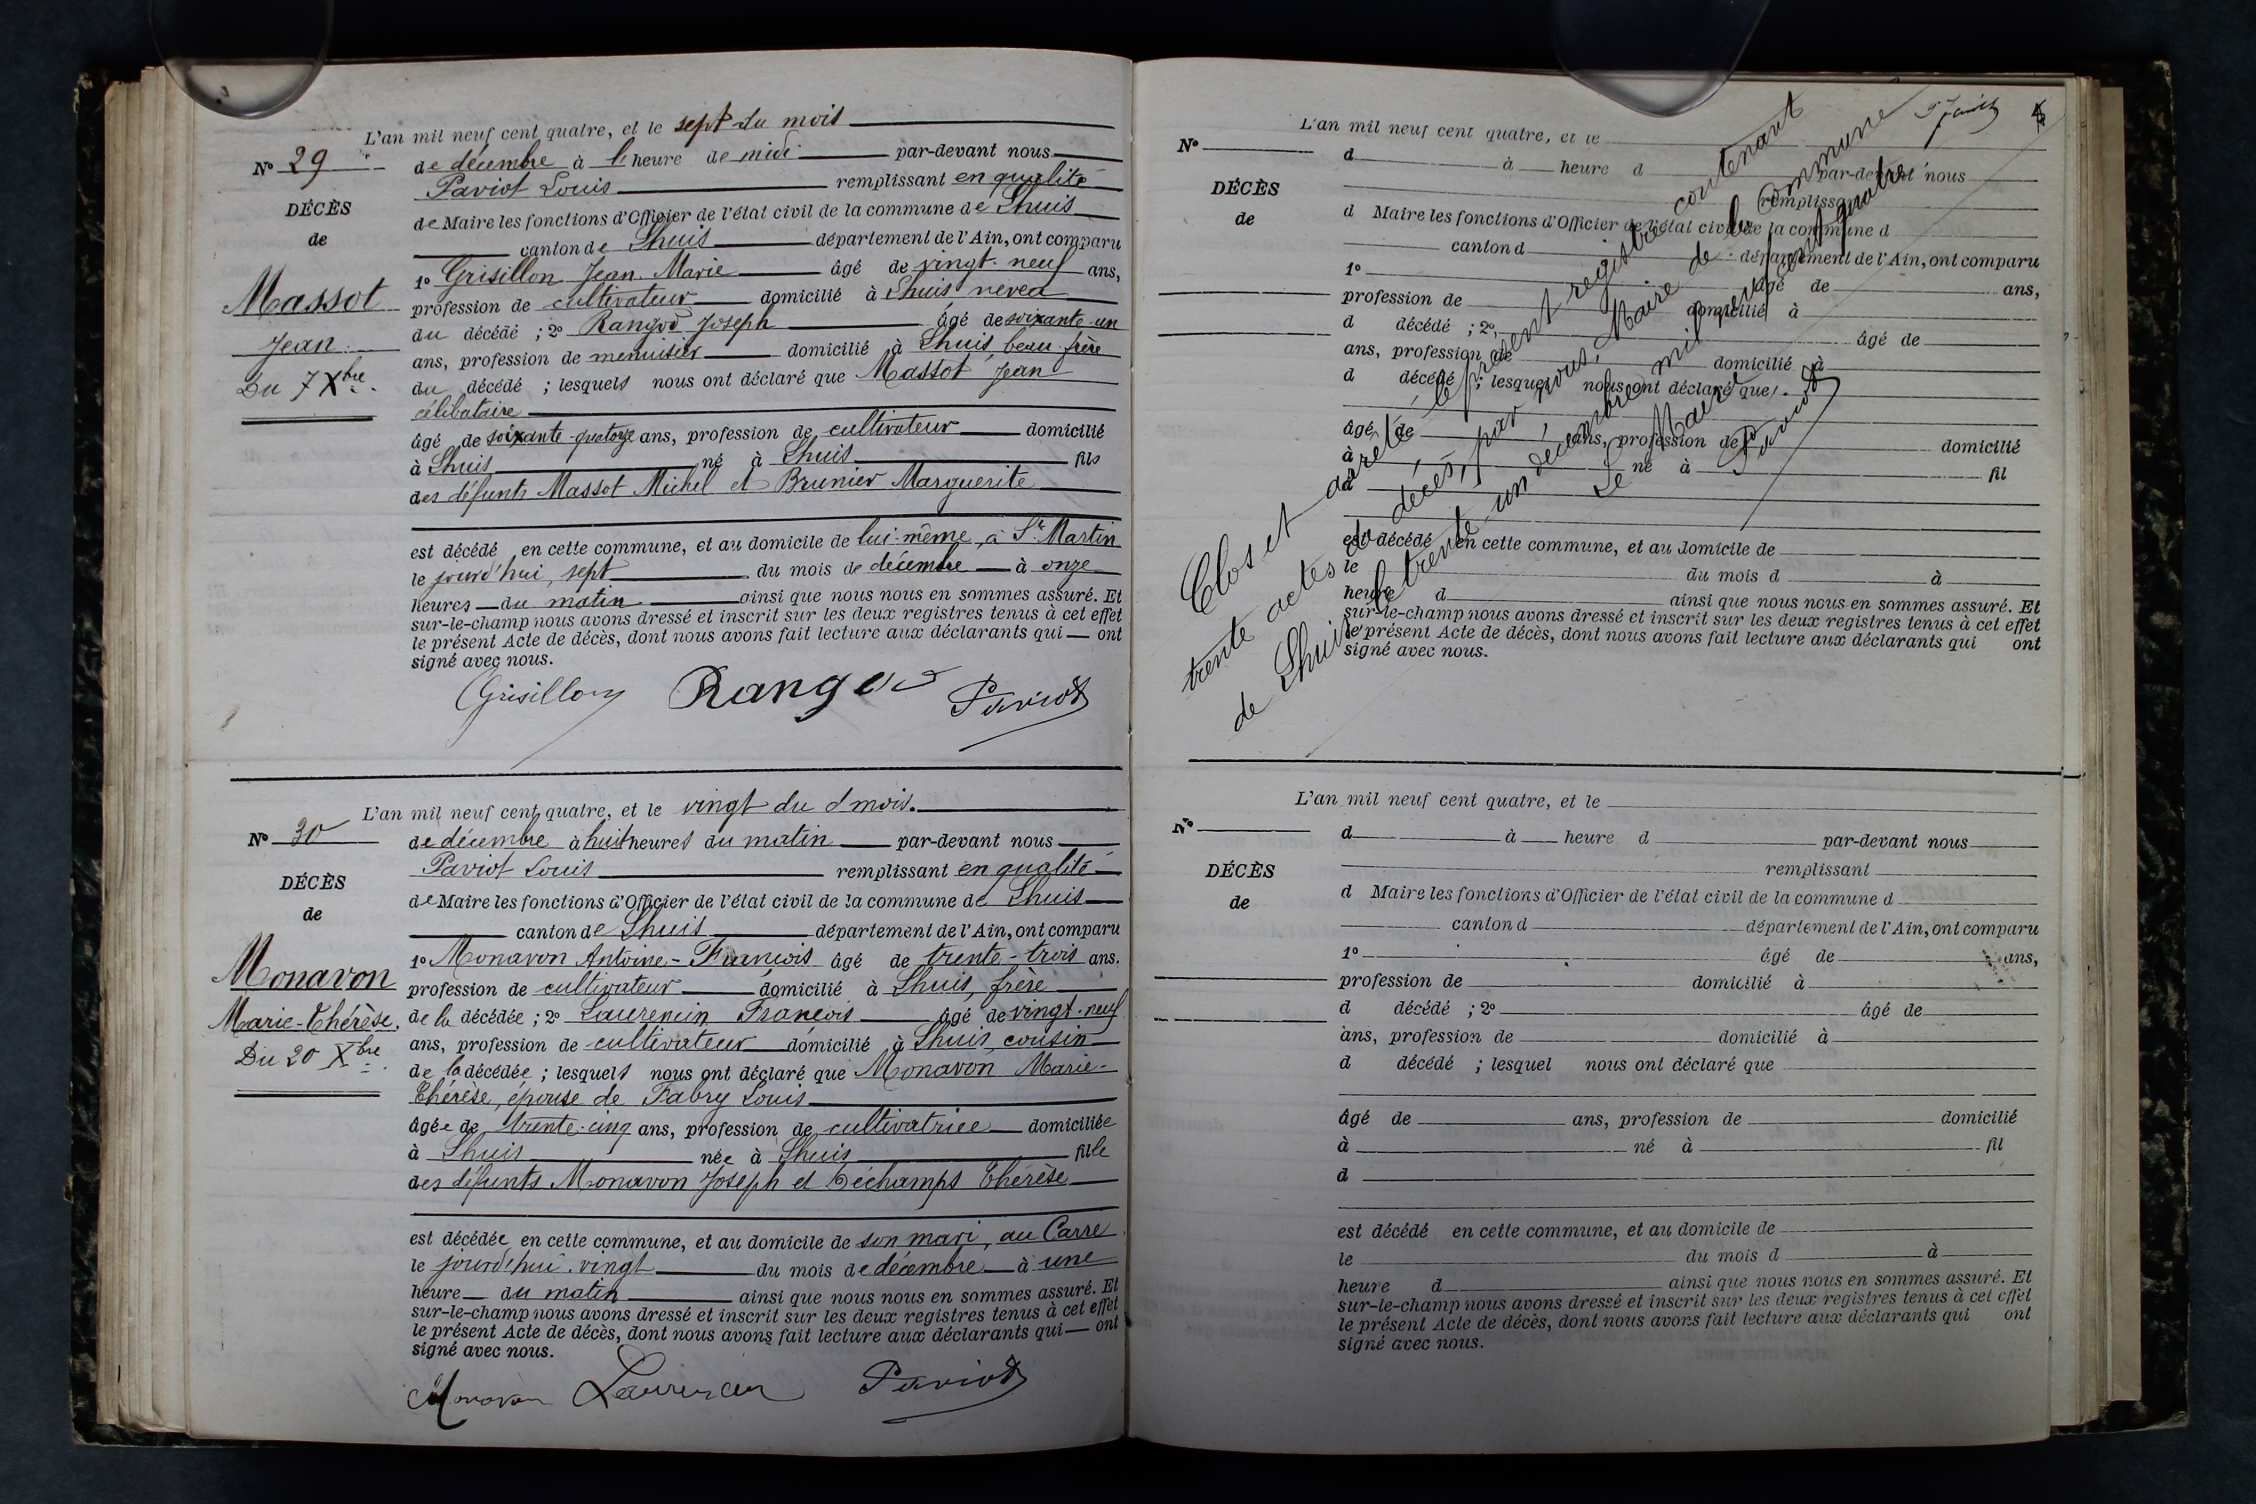 L'an mil neuf cent quatre, et le sept du mois
N° 29
de décembre à l'heure de midi par-devant nous
Paviot Louis remplissant en qualité
DÉCÈS
de Maire les fonctions d'Officier de l'état civil de la commune de Lhuis
de
canton de Lhuis département de l'Ain, ont comparu
1° Grisillon Jean Marie âgé de vingt-neuf ans,
Massot
profession de cultivateur domicilié à Lhuis neveu
Jean
du décédé ; 2° Rangod Joseph âgé de soixante-un
ans, profession de menuisier domicilié à Lhuis, beau-frère
Du 7 Xbre
du décédé ; lesquels nous ont déclaré que Massot Jean
célibataire
âgé de soixante-quatorze ans, profession de cultivateur domicilié
à Lhuis né à Lhuis fils
des défunts Massot Michel et Brunier Marguerite
est décédé en cette commune, et au domicile de lui-même, à St Martin
le jourd'hui, sept du mois de décembre à onze
heures du matin ainsi que nous nous en sommes assuré. Et
sur-le-champ nous avons dressé et inscrit sur les deux registres tenus à cet effet
le présent Acte de décès, dont nous avons fait lecture aux déclarants qui ont
signé avec nous.
Grisillon Rangod Paviot
L'an mil neuf cent quatre, et le vingt du d mois.
N° 30
de décembre à huit heures du matin par-devant nous
Paviot Louis remplissant en qualité
DÉCÈS
de Maire les fonctions d'Officier de l'état civil de la commune de Lhuis
de
canton de Lhuis département de l'Ain, ont comparu
1° Monavon Antoine-François âgé de trente-trois ans.
Monavon
profession de cultivateur domicilié à Lhuis, frère
Marie-Thérèse.
de la décédée ; 2° Laurencin François âgé de vingt-neuf
ans, profession de cultivateur domicilié à Lhuis, cousin
Du 20 Xbre.
de la décédée ; lesquels nous ont déclaré que Monavon Marie-
Thérèse, épouse de Fabry Louis
âgée de trente-cinq ans, profession de cultivatrice domiciliée
à Lhuis née à Lhuis fille
des défunts Monavon Joseph et Déchamps Thérèse
est décédée en cette commune, et au domicile de son mari, au Carre
le jourd'hui vingt du mois de décembre à une
heure du matin ainsi que nous nous en sommes assuré. Et
sur-le-champ nous avons dressé et inscrit sur les deux registres tenus à cet effet
le présent Acte de décès, dont nous avons fait lecture aux déclarants qui ont
signé avec nous.
Monavon Laurencin Paviot
L'an mil neuf cent quatre, et le
N°
d à heure d par-devant nous
remplissant
DÉCÈS
d Maire les fonctions d'Officier de l'état civil de la commune d
de
canton d département de l'Ain, ont comparu
1° âgé de ans,
profession de domicilié à
d décédé ; 2° âgé de
ans, profession de domicilié à
d décédé ; lesquel nous ont déclaré que
âgé de ans, profession de domicilié
à né à fil
d
est décédé en cette commune, et au domicile de
le du mois d à
heure d ainsi que nous nous en sommes assuré. Et
sur-le-champ nous avons dressé et inscrit sur les deux registres tenus à cet effet
le présent Acte de décès, dont nous avons fait lecture aux déclarants qui ont
signé avec nous.
Clos et arrêté le présent registre contenant
trente actes de décès, par nous, Maire de la Commune
de Lhuis le trente-un décembre mil neuf cent quatre
Le Maire
Paviot
L'an mil neuf cent quatre, et le
N°
d à heure d par-devant nous
remplissant
DÉCÈS
d Maire les fonctions d'Officier de l'état civil de la commune d
de
canton d département de l'Ain, ont comparu
1° âgé de ans,
profession de domicilié à
d décédé ; 2° âgé de
ans, profession de domicilié à
d décédé ; lesquel nous ont déclaré que
âgé de ans, profession de domicilié
à né à fil
d
est décédé en cette commune, et au domicile de
le du mois d à
heure d ainsi que nous nous en sommes assuré. Et
sur-le-champ nous avons dressé et inscrit sur les deux registres tenus à cet effet
le présent Acte de décès, dont nous avons fait lecture aux déclarants qui ont
signé avec nous.